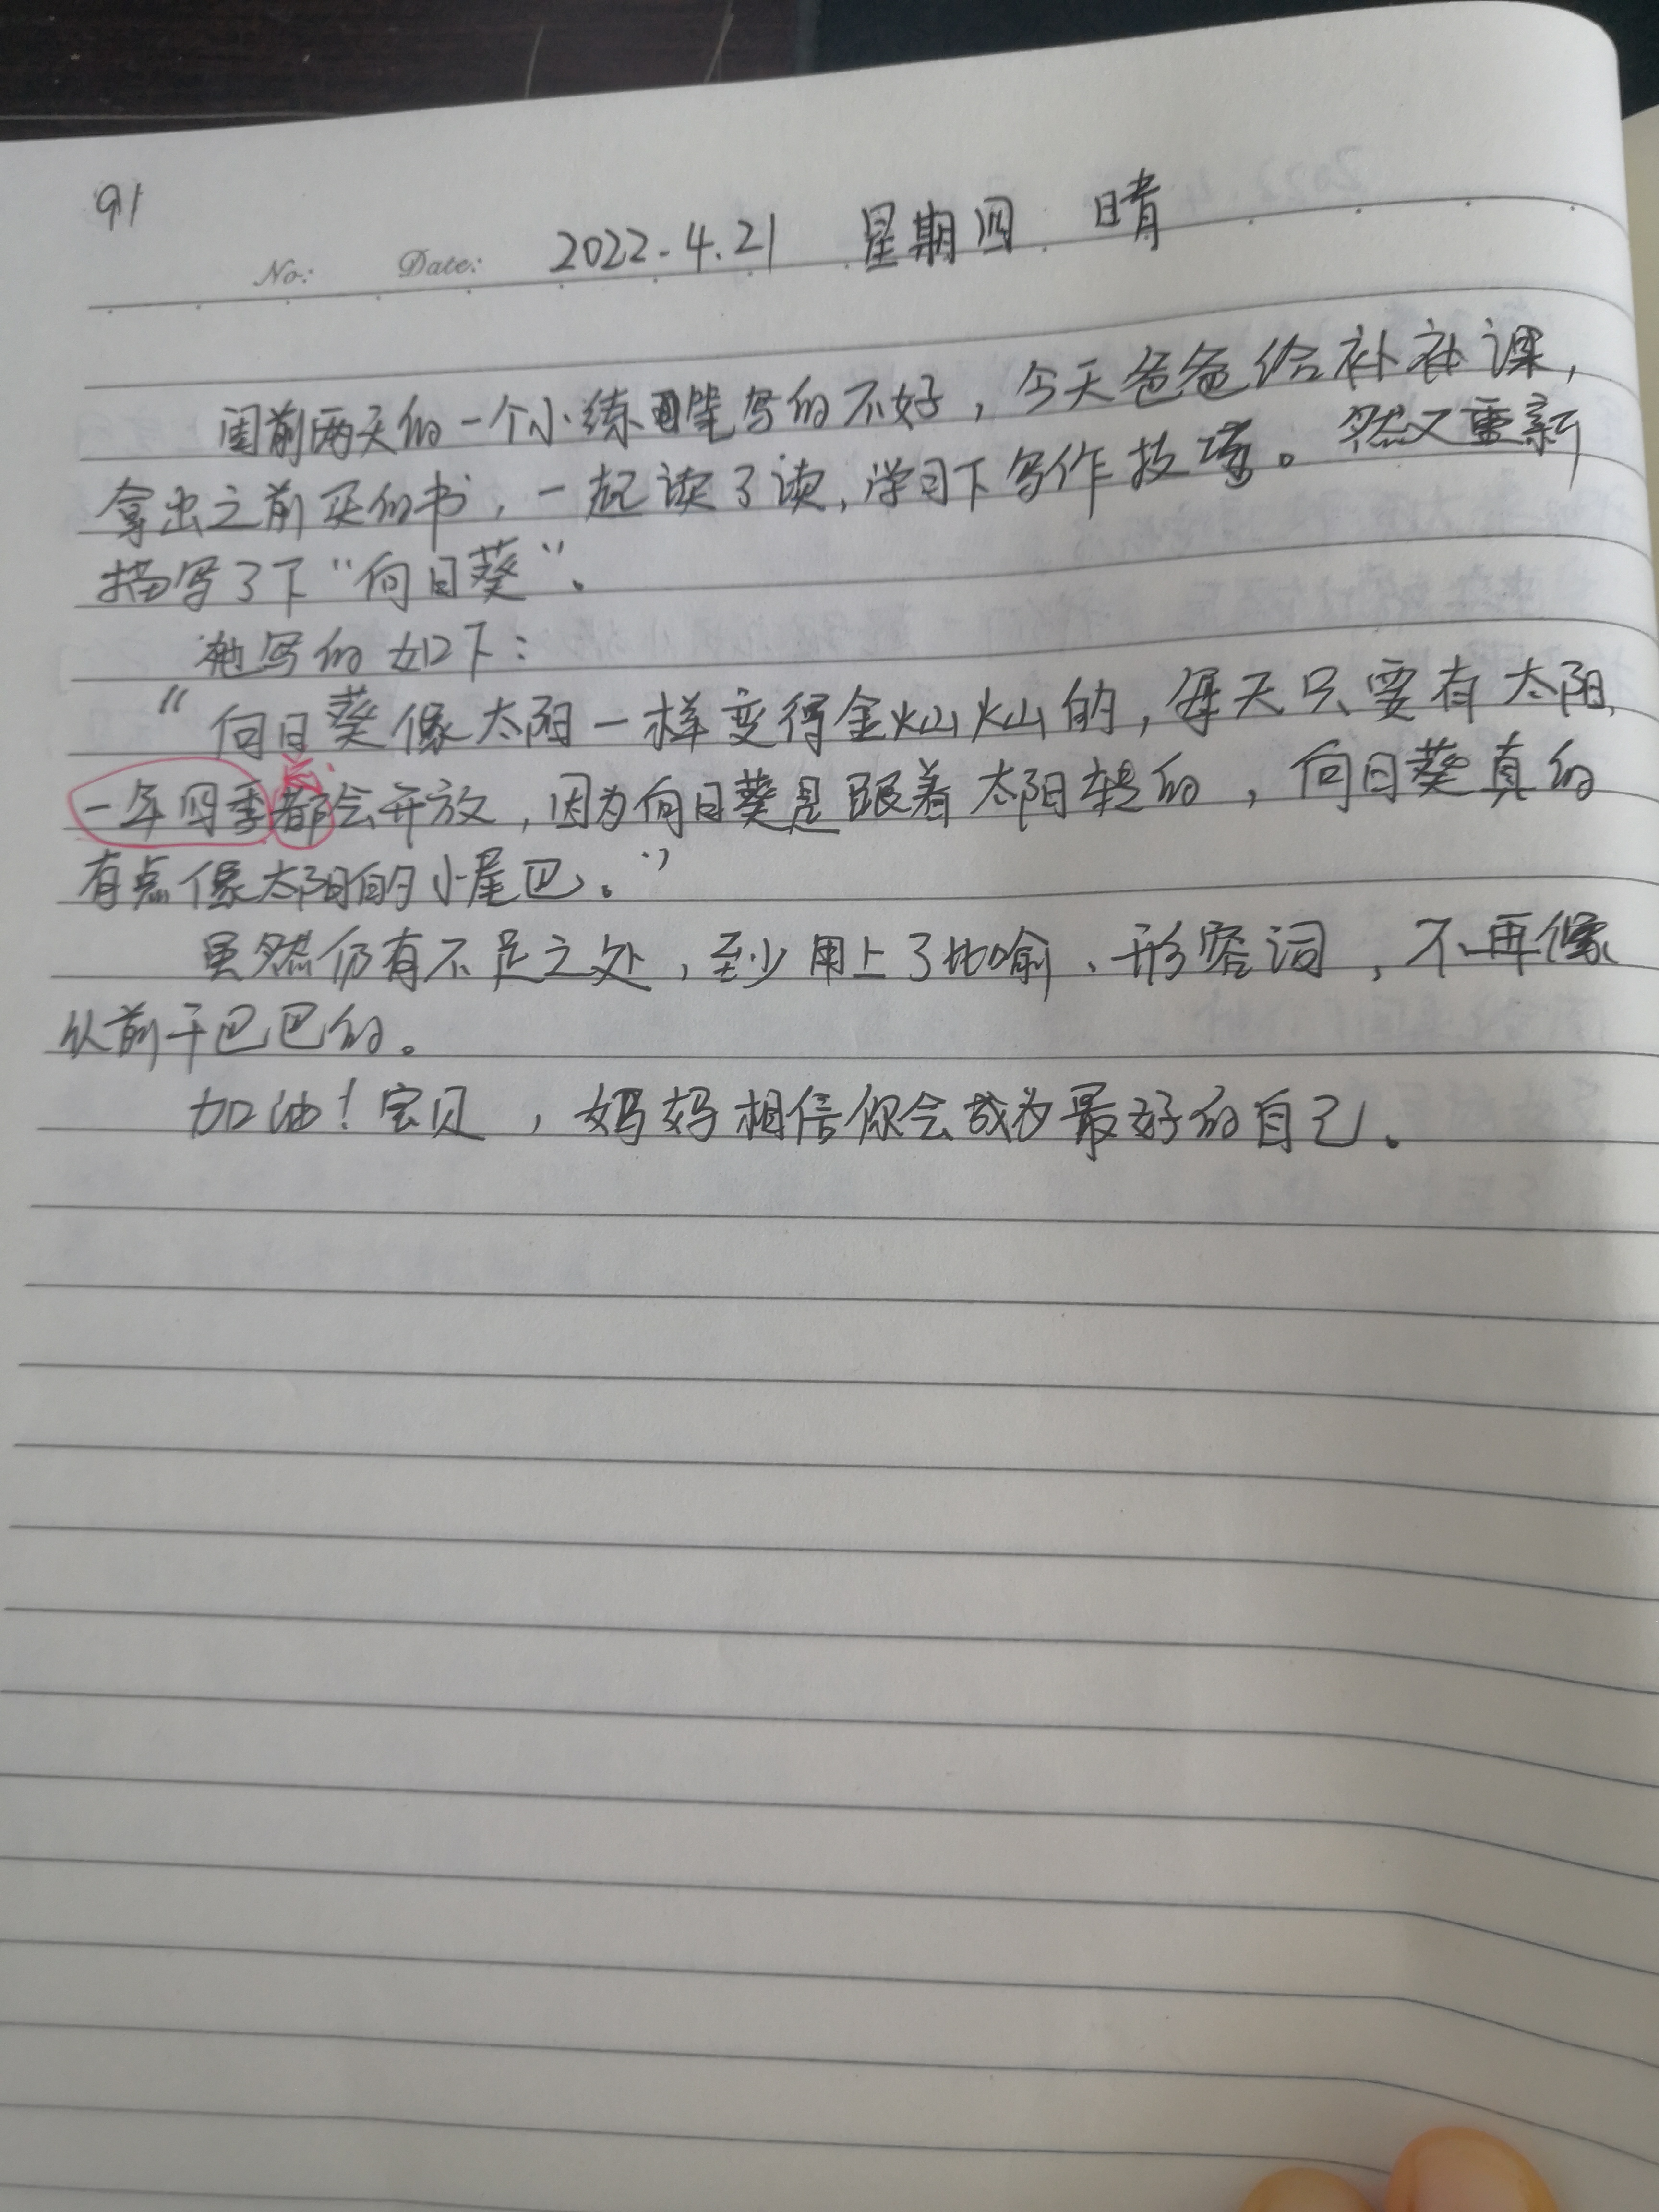 91
No: Date: 2022.4.21 星期四 晴
因前两天的一个小练习笔写的不好，今天爸爸给补补课，
拿出之前买的书，一起读了读，学习下写作技巧。然又重新
描写了下“向日葵”。
她写的如下：
“向日葵像太阳一样变得金灿灿的，每天只要有太阳，
一年四季都会开放，因为向日葵是跟着太阳转的，向日葵真的
有点像太阳的小尾巴。”
虽然仍有不足之处，至少用上了比喻、形容词，不再像
从前干巴巴的。
加油！宝贝，妈妈相信你会成为最好的自己。